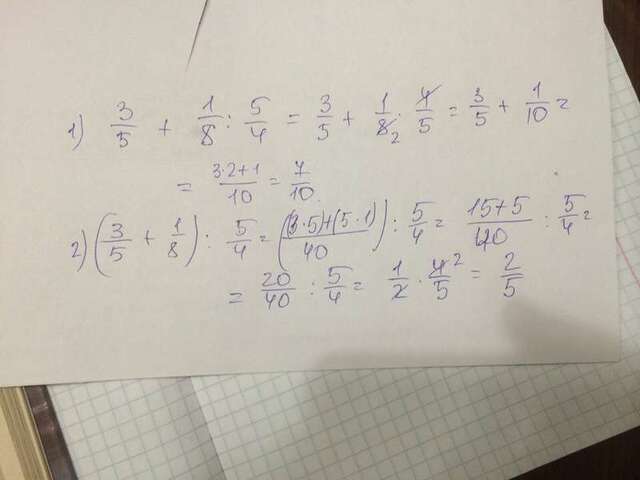 1) 3/5 + 1/8 : 5/4 = 3/5 + 1/8 2 · 4/5 = 3/5 + 1/10 =
= 3·2+1/10 = 7/10
2) (3/5 + 1/8) : 5/4 = ((3·5)+(5·1)/40) : 5/4 = 15+5/40 : 5/4 =
= 20/40 : 5/4 = 1/2 · 4/5 2 = 2/5